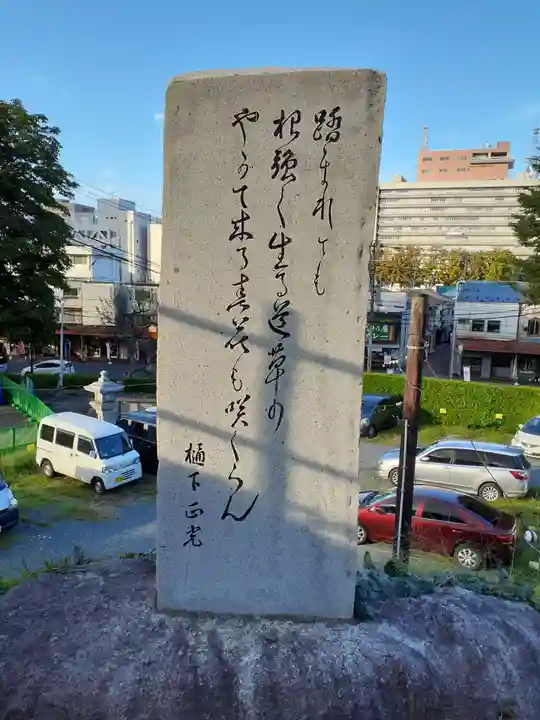 踏まれても
根強く生る道草の
やがて来る春花も咲くらん
樋下正光